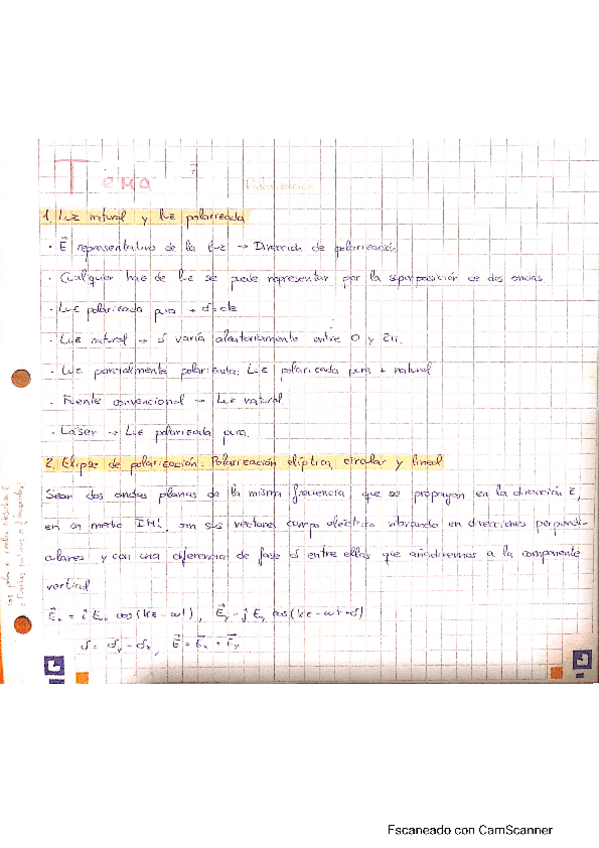 Tema 7
Polarización
1. Luz natural y luz polarizada
· E⃗ representativo de la luz → Dirección de polarización
· Cualquier haz de luz se puede representar por la superposición de dos ondas
· Luz polarizada pura → δ=cte
· Luz natural → δ varía aleatoriamente entre 0 y 2π.
· Luz parcialmente polarizada: Luz polarizada pura + natural
· Fuente convencional → Luz natural
· Láser → Luz polarizada pura.
2. Elipse de polarización. Polarización elíptica, circular y lineal
Sean dos ondas planas de la misma frecuencia, que se propagan en la dirección z,
en un medio IHL, con sus vectores campo eléctrico vibrando en direcciones perpendi-
culares y con una diferencia de fase δ entre ellas que añadiremos a la componente
vertical
E⃗ₓ = î Eₓ cos(kz - ωt), E⃗ᵧ = ĵ Eᵧ cos(kz - ωt + δ)
δ = δᵧ - δₓ, E⃗ = E⃗ₓ + E⃗ᵧ
Escaneado con CamScanner